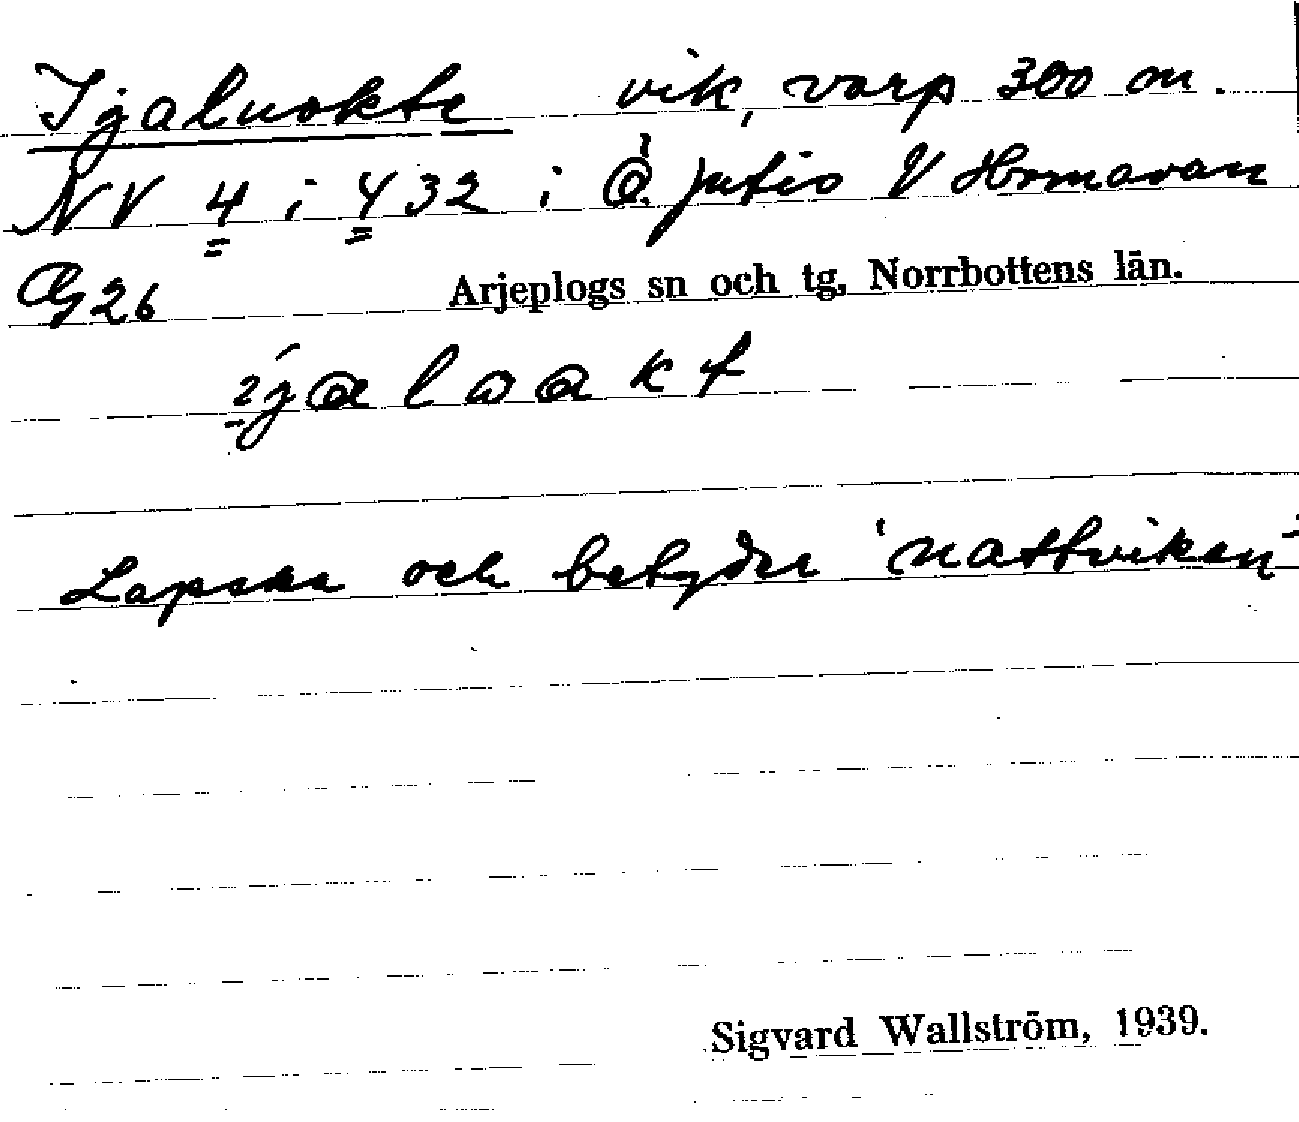 Igaluokte vik, varp 300 m.
NV 4 i 432 i Ö. V Hornavan
G26 Arjeplogs sn och tg, Norrbottens län.
Lapska och betyder 'nattviken'
Sigvard Wallström, 1939.